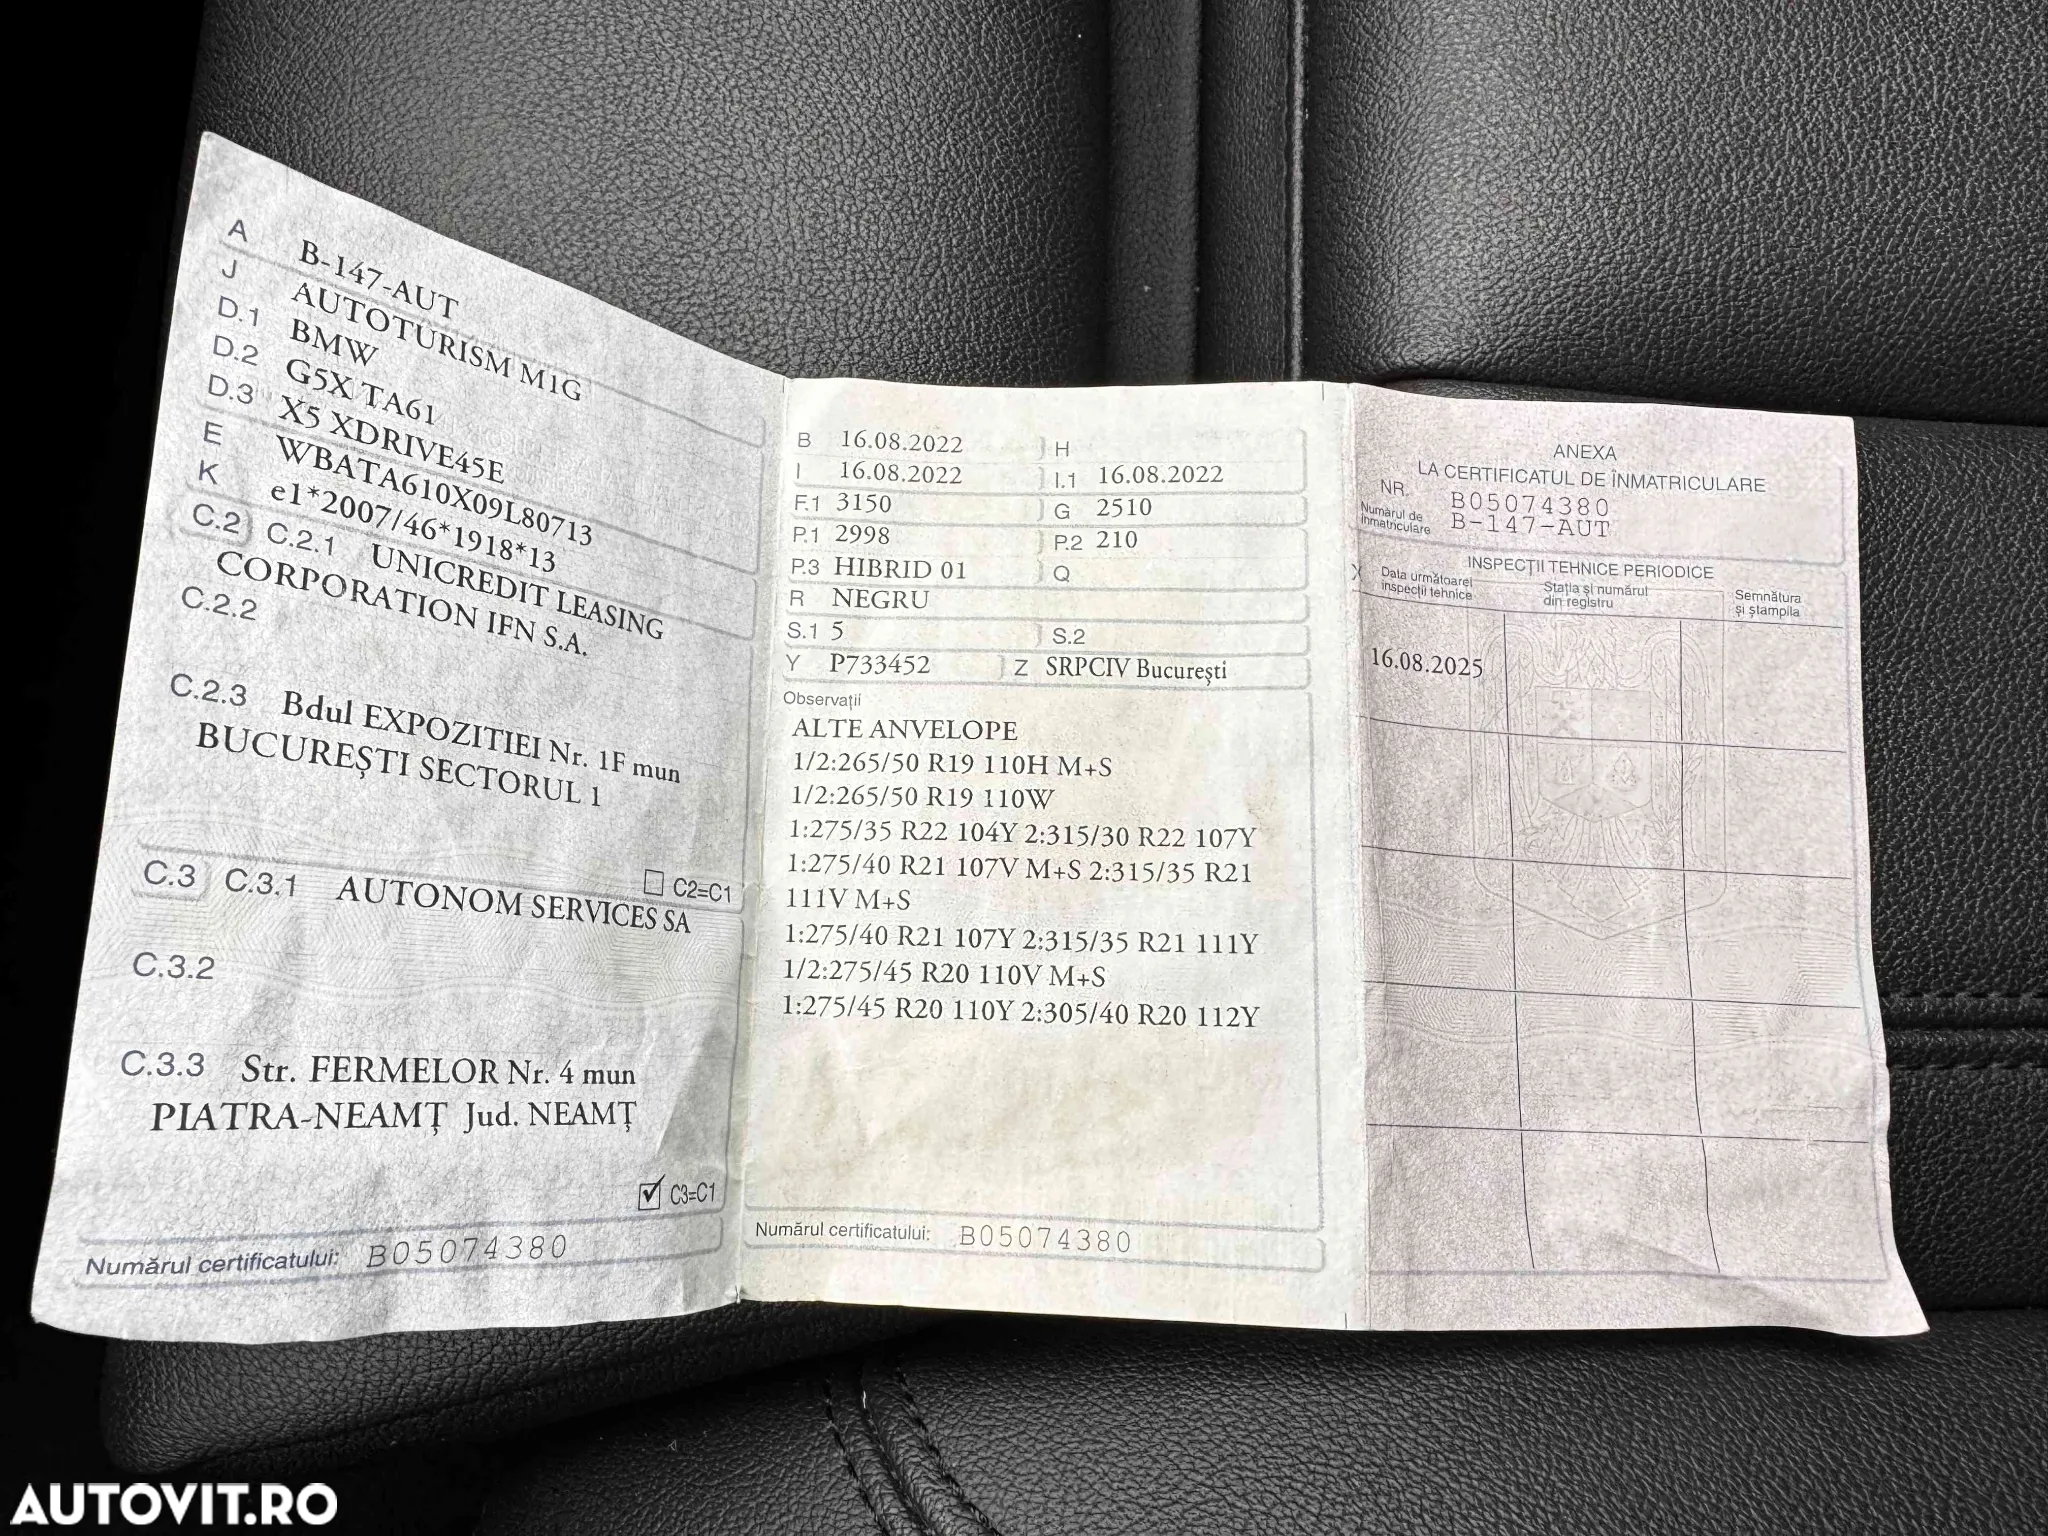 A B-147-AUT
J AUTOTURISM M1G
D.1 BMW
D.2 G5X TA61
D.3 X5 XDRIVE45E
E WBATA610X09L80713
K e1*2007/46*1918*13
C.2 C.2.1 UNICREDIT LEASING
CORPORATION IFN S.A.
C.2.2
C.2.3 Bdul EXPOZITIEI Nr. 1F mun
BUCUREȘTI SECTORUL 1
C2=C1
C.3 C.3.1 AUTONOM SERVICES SA
C.3.2
C.3.3 Str. FERMELOR Nr. 4 mun
PIATRA-NEAMȚ Jud. NEAMȚ
C3=C1
Numărul certificatului: B05074380
B 16.08.2022 H
I 16.08.2022 I.1 16.08.2022
F.1 3150 G 2510
P.1 2998 P.2 210
P.3 HIBRID 01 Q
R NEGRU
S.1 5 S.2
Y P733452 Z SRPCIV București
Observații
ALTE ANVELOPE
1/2:265/50 R19 110H M+S
1/2:265/50 R19 110W
1:275/35 R22 104Y 2:315/30 R22 107Y
1:275/40 R21 107V M+S 2:315/35 R21
111V M+S
1:275/40 R21 107Y 2:315/35 R21 111Y
1/2:275/45 R20 110V M+S
1:275/45 R20 110Y 2:305/40 R20 112Y
Numărul certificatului: B05074380
ANEXA
LA CERTIFICATUL DE ÎNMATRICULARE
NR. B05074380
Numărul de înmatriculare B-147-AUT
INSPECȚII TEHNICE PERIODICE
X Data următoarei inspecții tehnice Stația și numărul din registru Semnătura și ștampila
16.08.2025
AUTOVIT.RO